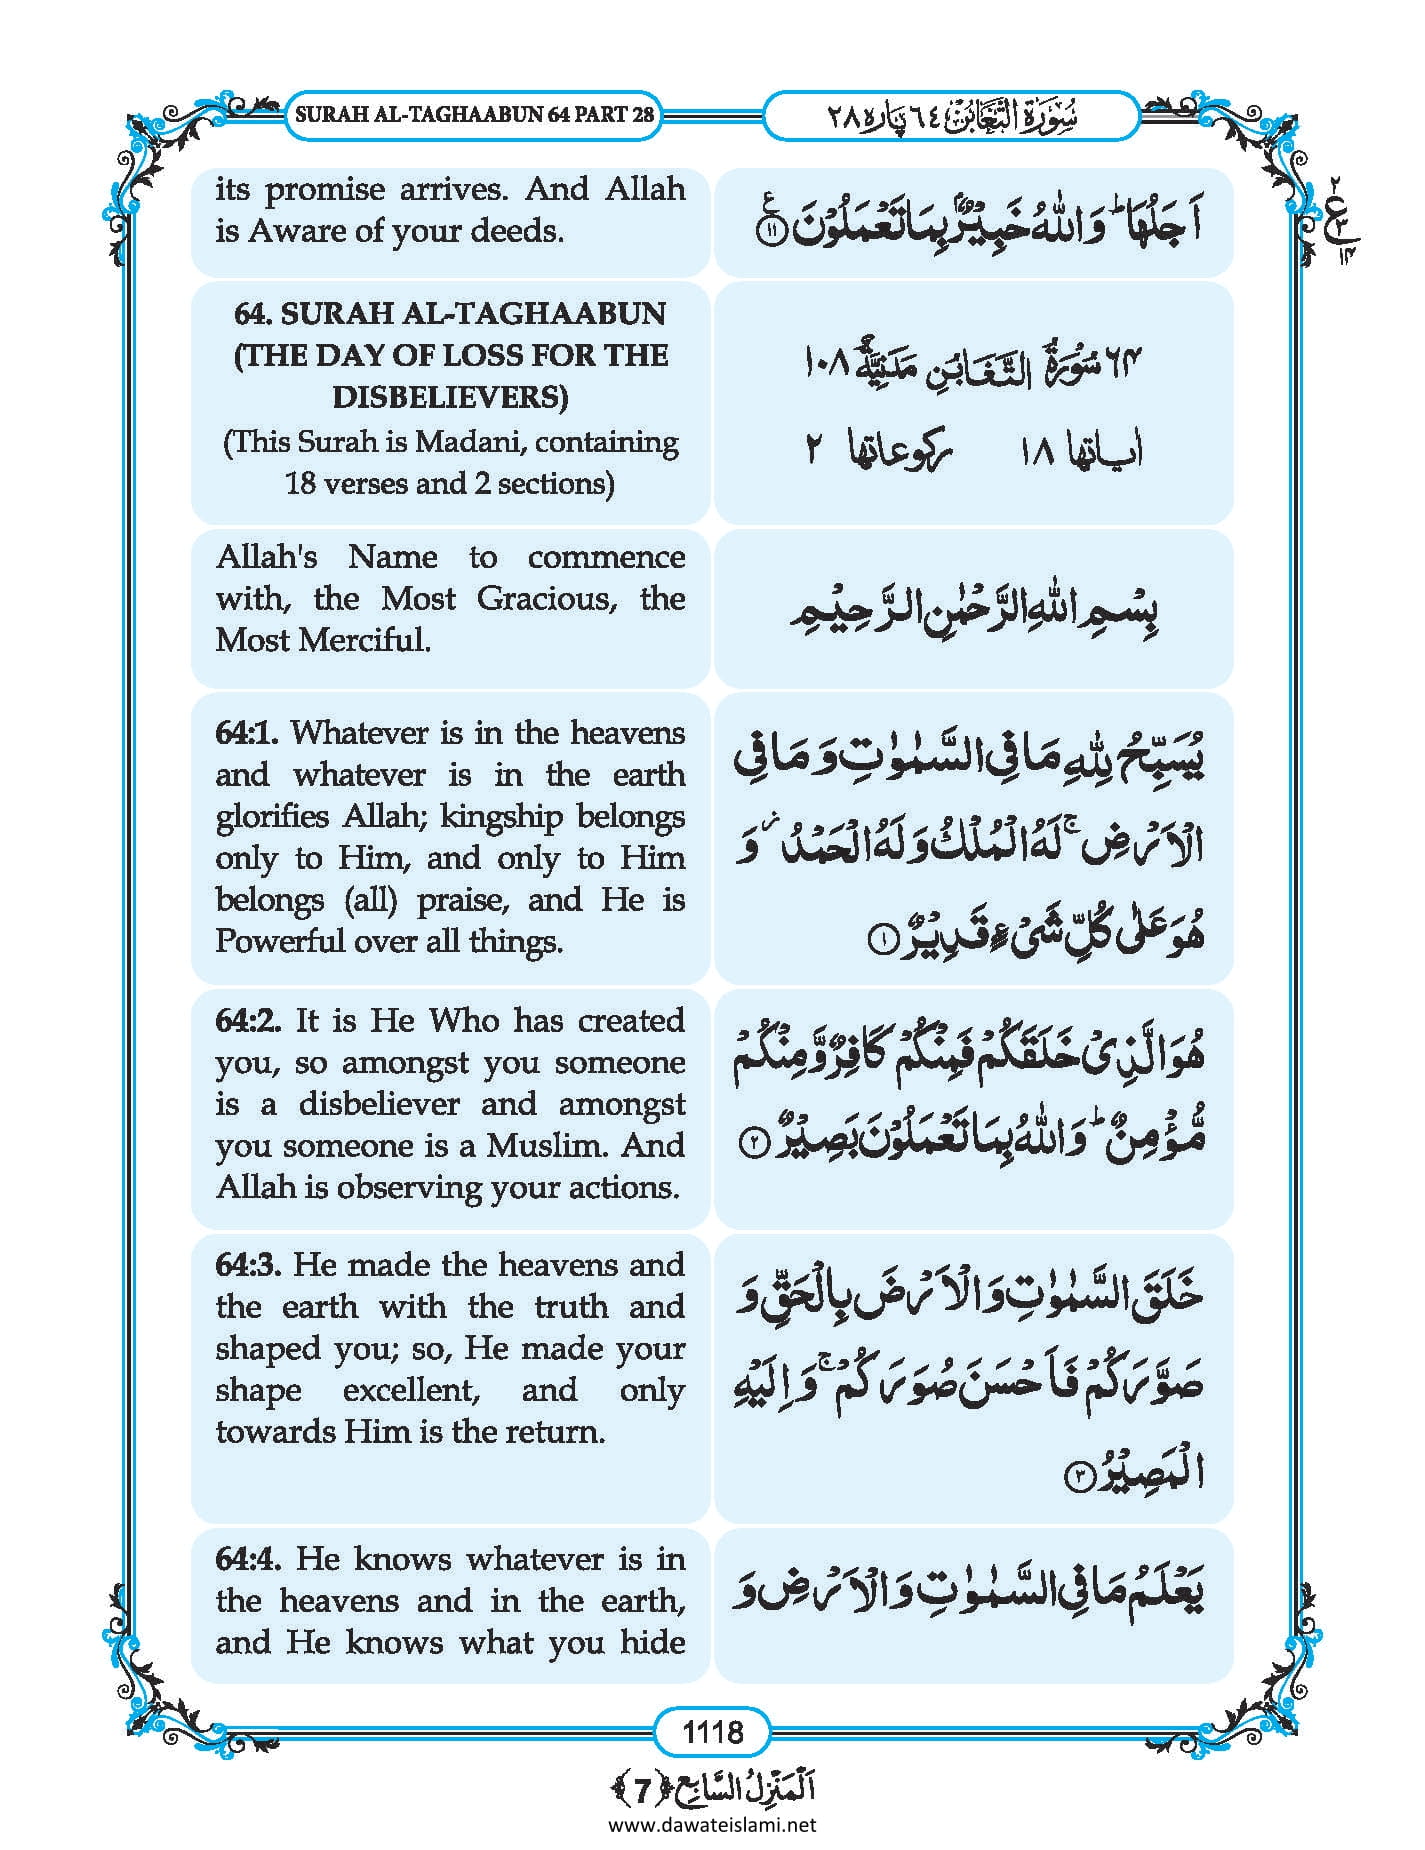 SURAH AL-TAGHAABUN 64 PART 28
سُوْرَةُ التَّغَابُنْ ٦٤ پَاره ٢٨
its promise arrives. And Allah
is Aware of your deeds.
اَجَلُهَا ؕ وَ اللّٰهُ خَبِيْرٌۢ بِمَا تَعْمَلُوْنَ ﴿۱۱﴾
64. SURAH AL-TAGHAABUN
(THE DAY OF LOSS FOR THE
DISBELIEVERS)
(This Surah is Madani, containing
18 verses and 2 sections)
۶۴ سُوْرَةُ التَّغَابُنِ مَدَنِيَّةٌ ۱۰۸
اٰیاتها ۱۸ رکوعاتها ۲
Allah's Name to commence
with, the Most Gracious, the
Most Merciful.
بِسْمِ اللّٰهِ الرَّحْمٰنِ الرَّحِيْمِ
64:1. Whatever is in the heavens
and whatever is in the earth
glorifies Allah; kingship belongs
only to Him, and only to Him
belongs (all) praise, and He is
Powerful over all things.
يُسَبِّحُ لِلّٰهِ مَا فِي السَّمٰوٰتِ وَ مَا فِي
الْاَرْضِ ۚ لَهُ الْمُلْكُ وَ لَهُ الْحَمْدُ ؗ وَ
هُوَ عَلٰى كُلِّ شَيْءٍ قَدِيْرٌ ﴿۱﴾
64:2. It is He Who has created
you, so amongst you someone
is a disbeliever and amongst
you someone is a Muslim. And
Allah is observing your actions.
هُوَ الَّذِيْ خَلَقَكُمْ فَمِنْكُمْ كَافِرٌ وَّ مِنْكُمْ
مُّؤْمِنٌ ؕ وَ اللّٰهُ بِمَا تَعْمَلُوْنَ بَصِيْرٌ ﴿۲﴾
64:3. He made the heavens and
the earth with the truth and
shaped you; so, He made your
shape excellent, and only
towards Him is the return.
خَلَقَ السَّمٰوٰتِ وَ الْاَرْضَ بِالْحَقِّ وَ
صَوَّرَكُمْ فَاَحْسَنَ صُوَرَكُمْ ۚ وَ اِلَيْهِ
الْمَصِيْرُ ﴿۳﴾
64:4. He knows whatever is in
the heavens and in the earth,
and He knows what you hide
يَعْلَمُ مَا فِي السَّمٰوٰتِ وَ الْاَرْضِ وَ
1118
اَلْمَنْزِلُ السَّابِع ﴿7﴾
www.dawateislami.net